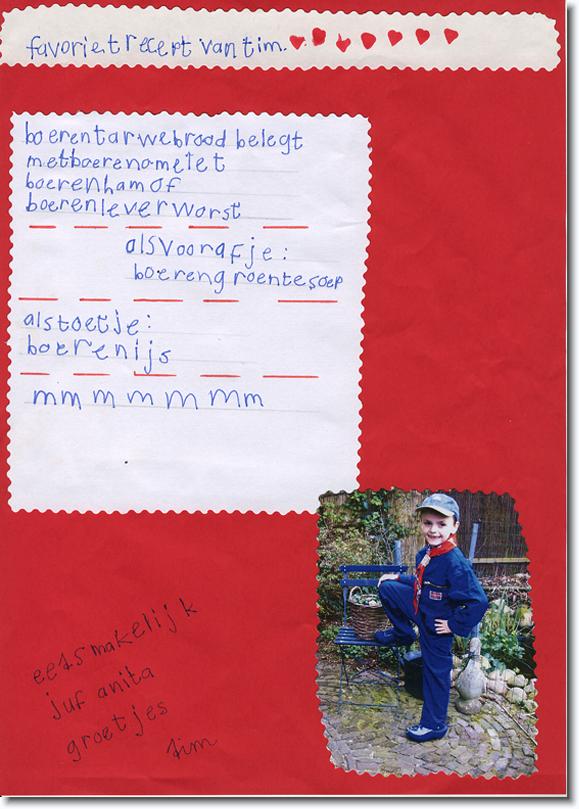 favoriet recept van tim.
boerentarwebrood belegt
met boerenomelet
boerenham of
boerenleverworst
als voorafje:
boerengroentesoep
als toetje:
boerenijs
mm m m m mm
eetsmakelijk
juf anita
groetjes
tim